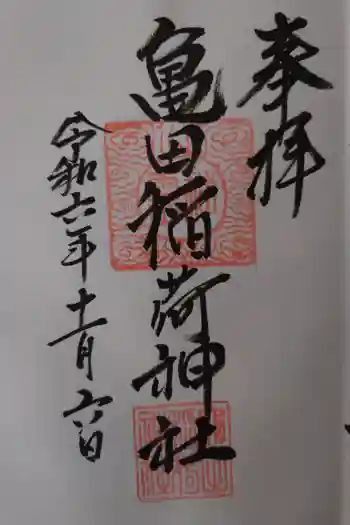 奉拝
亀田稲荷神社
令和六年十一月六日